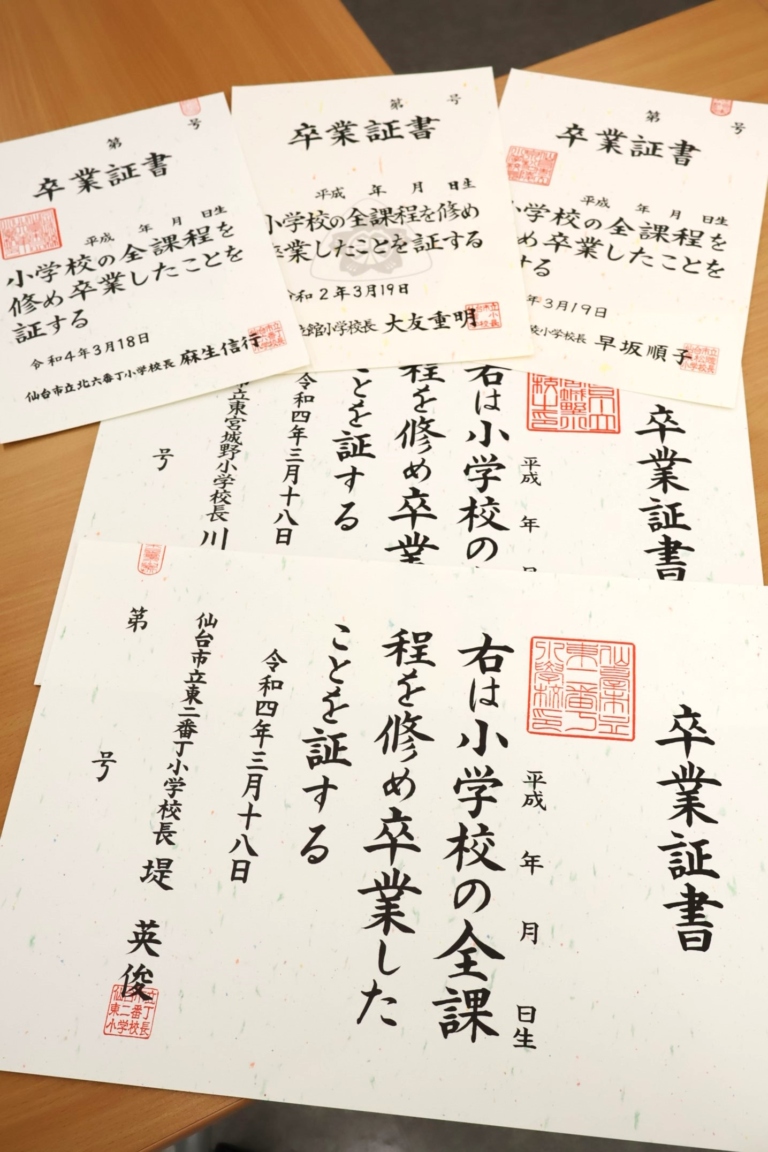 第 号
卒業証書
平成 年 月 日生
小学校の全課程を
修め卒業したことを
証する
令和4年3月18日
仙台市立北六番丁小学校長 麻生信行
第 号
卒業証書
平成 年 月 日生
小学校の全課程を修め
卒業したことを証する
令和2年3月19日
館小学校長 大友重明
第 号
卒業証書
平成 年 月 日生
小学校の全課程を
め卒業したことを
する
年3月19日
小学校長 早坂順子
卒業証書
平成 年
右は小学校の
程を修め卒業
ことを証する
令和四年三月十八日
立東宮城野小学校長 川
号
卒業証書
平成 年 月 日生
右は小学校の全課
程を修め卒業した
ことを証する
令和四年三月十八日
仙台市立東二番丁小学校長 堤 英俊
第 号